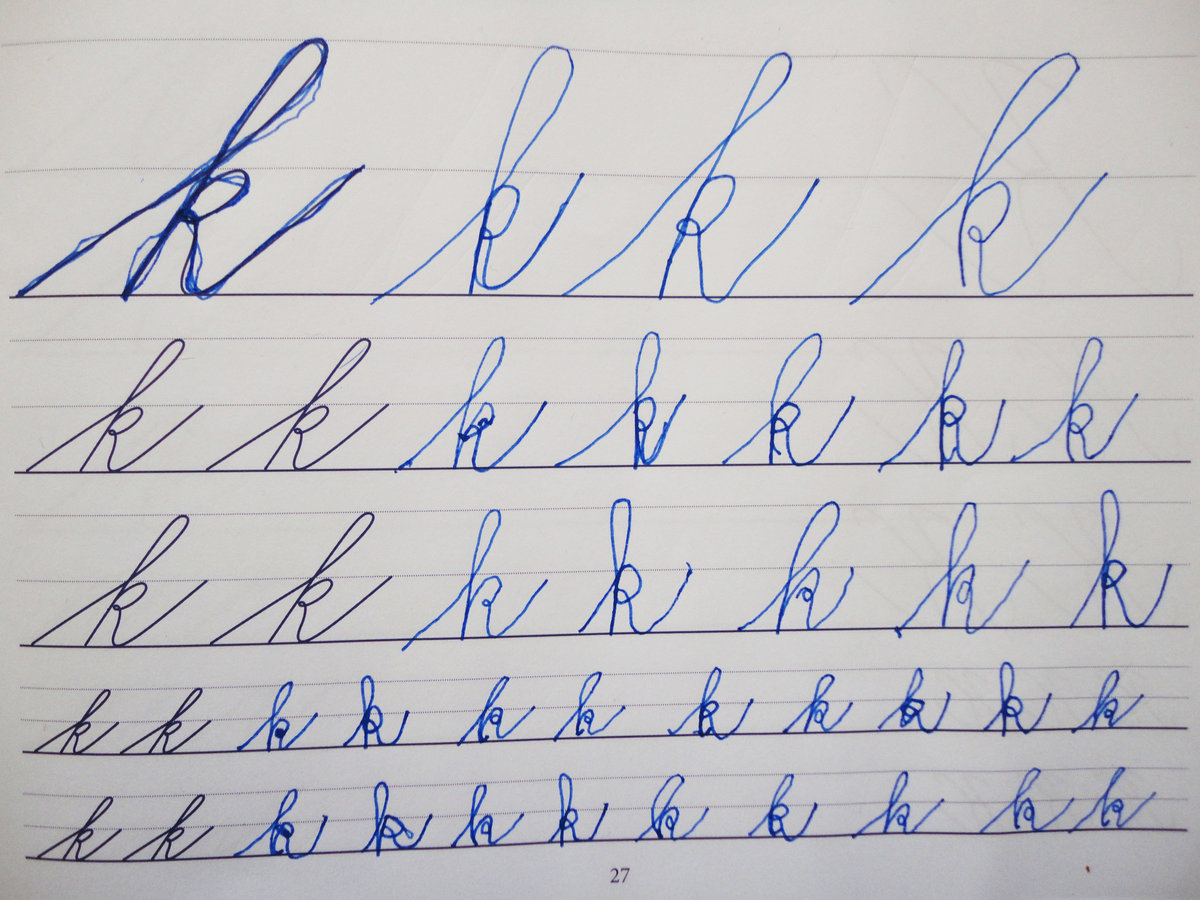 k k k k
k k k k k k k
k k k k k k k
k k k k k k k k k k k
k k k k k k k k k k k
27